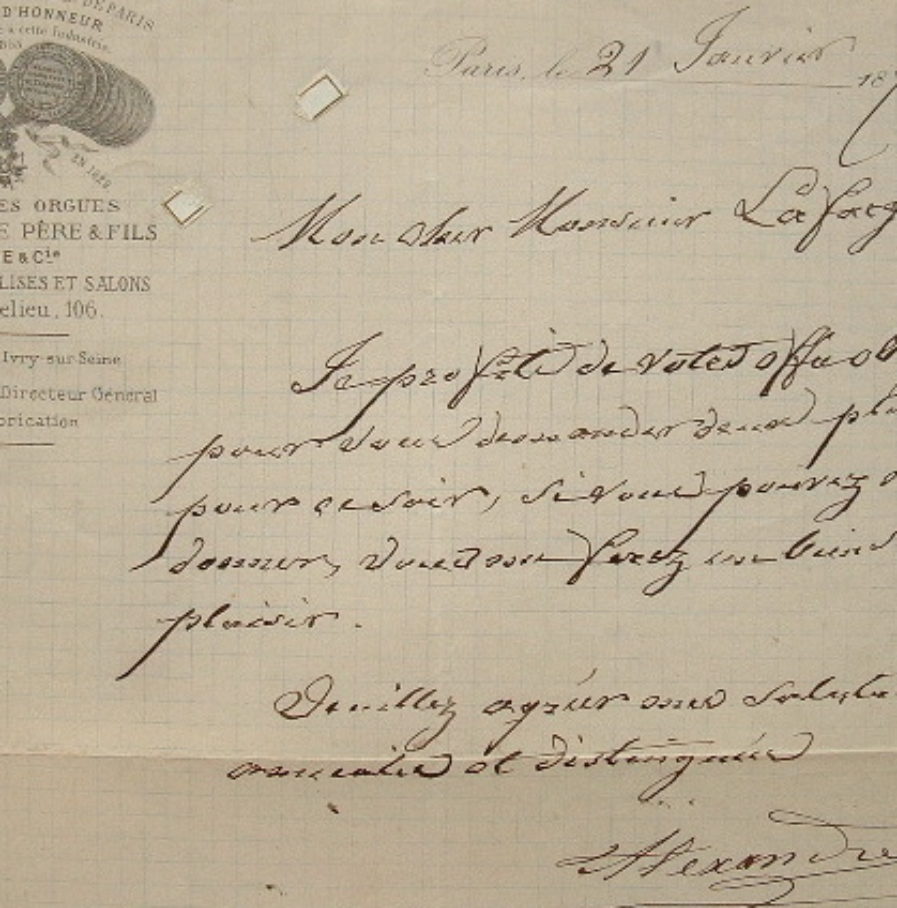 DE PARIS
D'HONNEUR
à cette Industrie.
EN 1829
Paris, le 21 Janvier 187
ES ORGUES
E PÈRE & FILS
E & Cie
LISES ET SALONS
elieu, 106.
Ivry-sur-Seine
Directeur Général
brication
Mon cher Monsieur Lafarg
Je profite de votre offre ob
pour vous demander deux pla
pour ce soir, si vous pouvez
donner, vous me ferez un bien
plaisir.
Veuillez agréer mes saluta
amicales et distinguées
Alexandre